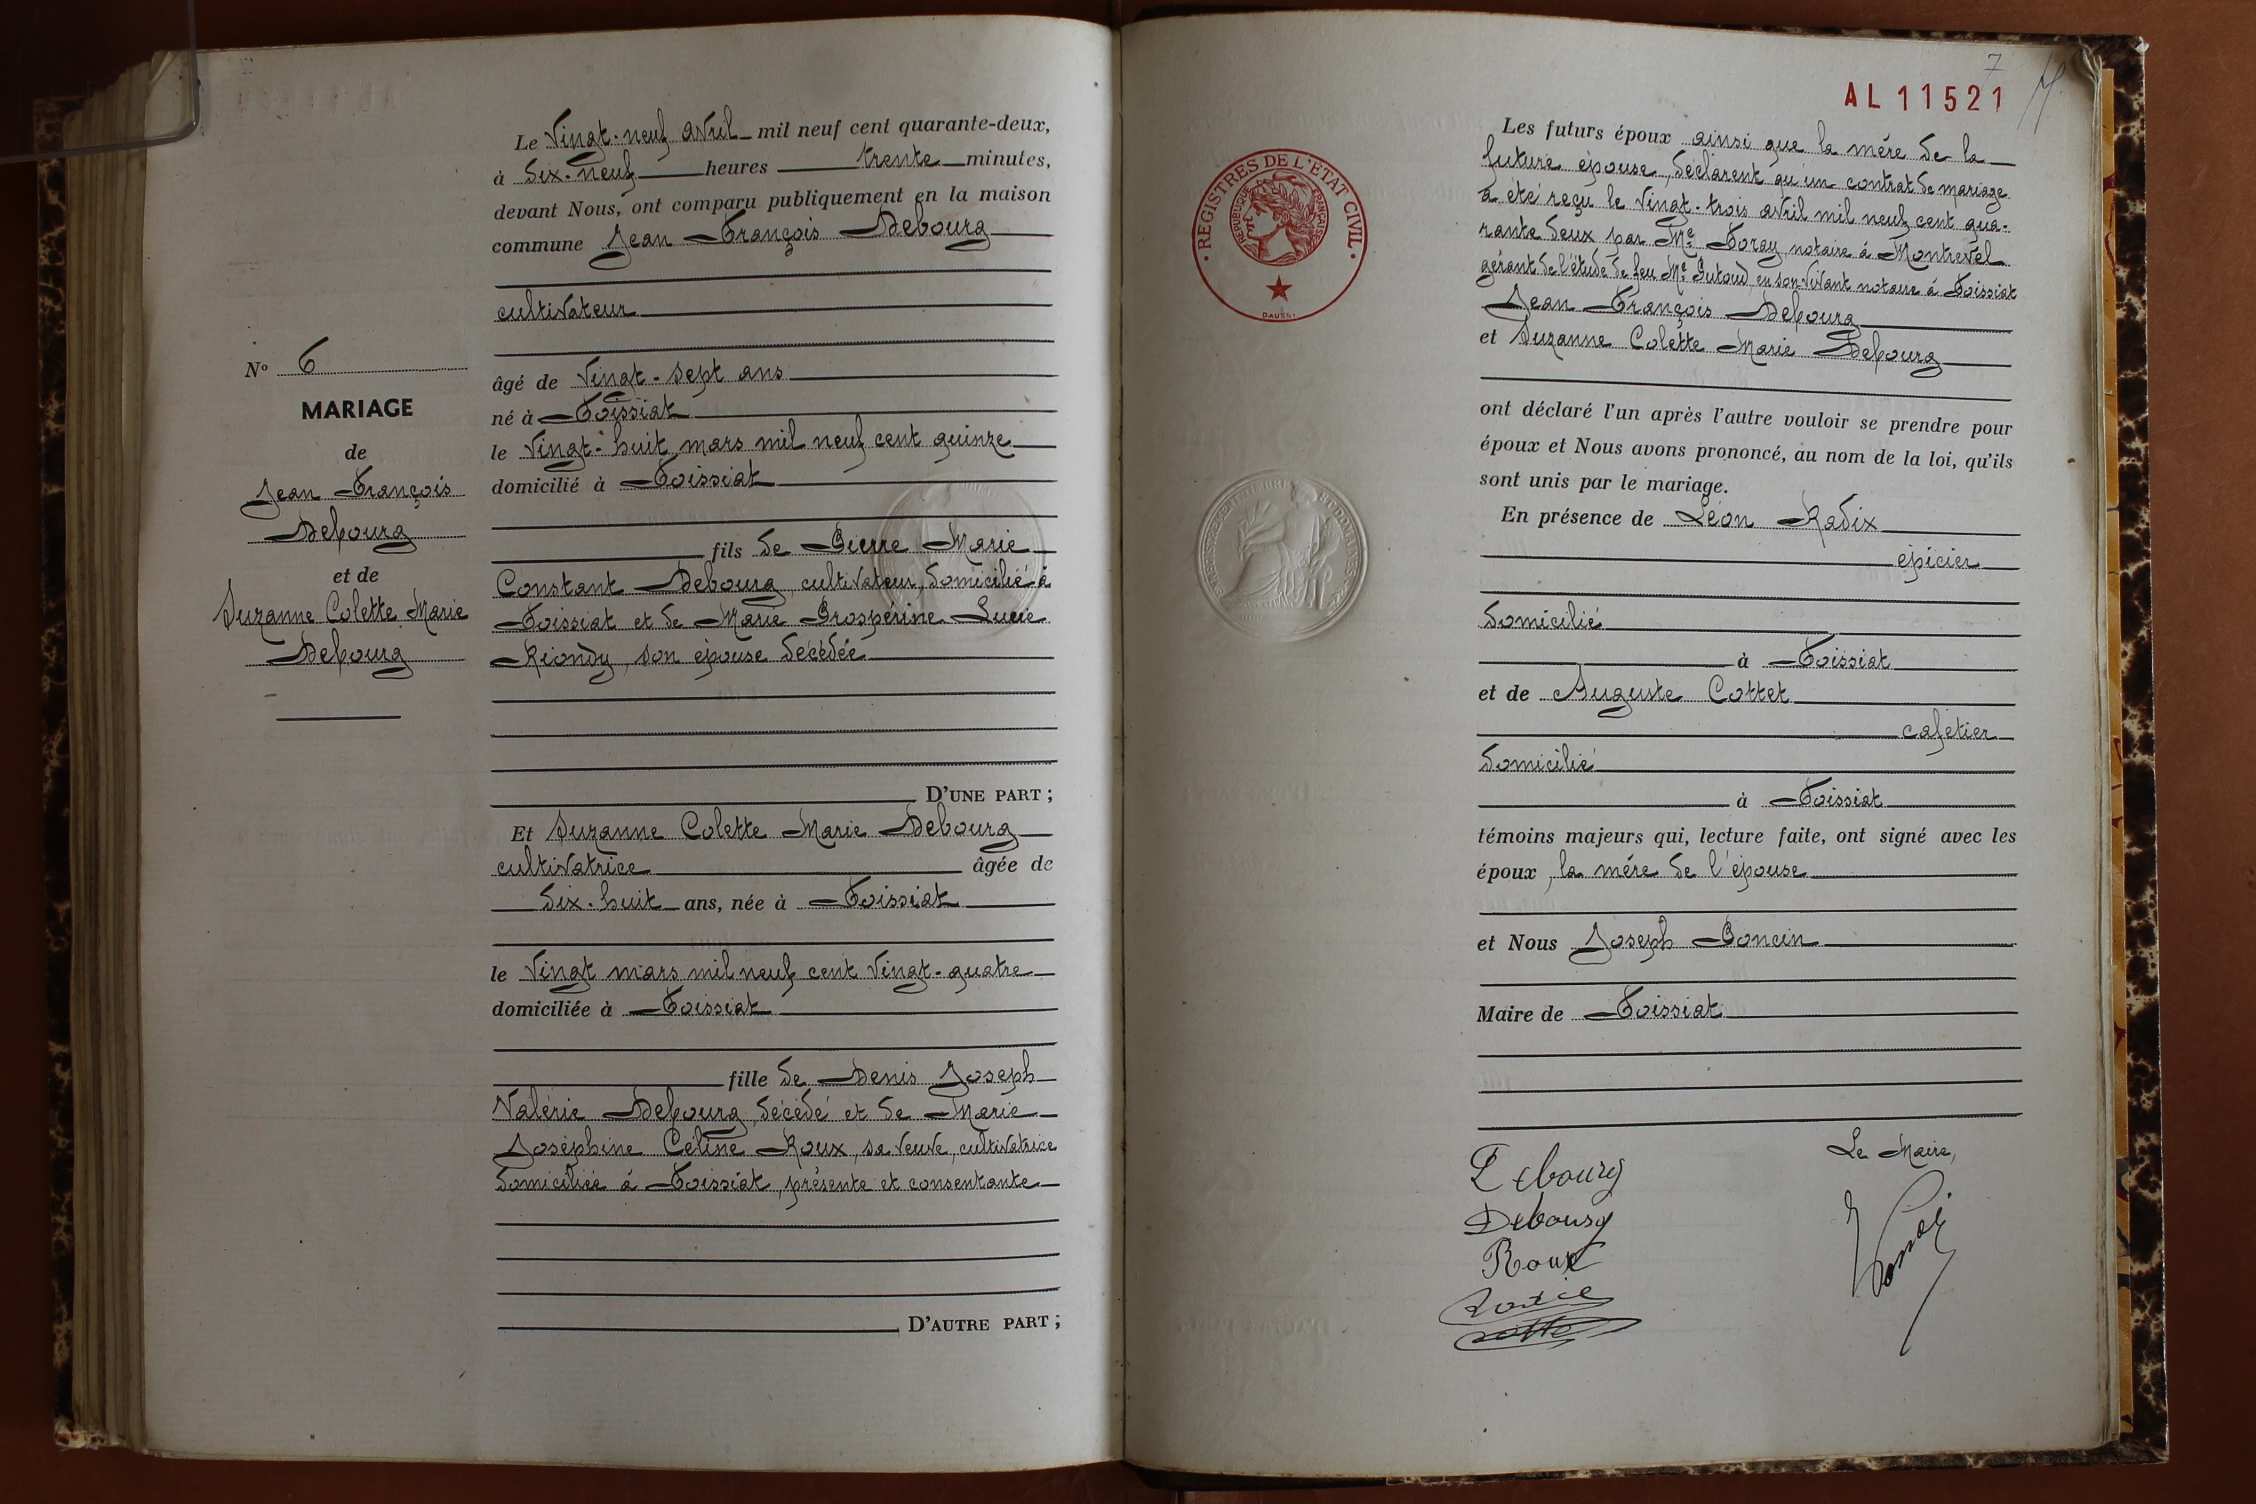 Le Vingt-neuf avril mil neuf cent quarante-deux,
à dix-neuf heures trente minutes,
devant Nous, ont comparu publiquement en la maison
commune Jean François Debourg
cultivateur
âgé de Vingt-sept ans
né à Foissiat
le Vingt-huit mars mil neuf cent quinze
domicilié à Foissiat
fils de Pierre Marie
Constant Debourg, cultivateur, domicilié à
Foissiat et de Marie Prospérine Lucie
Riondy, son épouse décédée
D'UNE PART ;
Et Suzanne Colette Marie Debourg
cultivatrice âgée de
dix-huit ans, née à Foissiat
le Vingt mars mil neuf cent Vingt-quatre
domiciliée à Foissiat
fille de Denis Joseph
Valérie Debourg, décédé et de Marie
Joséphine Celine Roux, sa veuve, cultivatrice
domiciliée à Foissiat, présente et consentante
D'AUTRE PART ;
N° 6
MARIAGE
de
Jean François
Debourg
et de
Suzanne Colette Marie
Debourg
7
AL 11521
REGISTRES DE L'ÉTAT CIVIL
RÉPUBLIQUE FRANÇAISE
Les futurs époux ainsi que la mère de la
future épouse, déclarent qu'un contrat de mariage
a été reçu le Vingt-trois avril mil neuf cent qua-
rante deux par Me Foray, notaire à Montrevel
gérant de l'étude de feu Me Putoud, en son vivant notaire à Foissiat
Jean François Debourg
et Suzanne Colette Marie Debourg
ont déclaré l'un après l'autre vouloir se prendre pour
époux et Nous avons prononcé, au nom de la loi, qu'ils
sont unis par le mariage.
En présence de Léon Radix
épicier
domicilié
à Foissiat
et de Auguste Cottet
cafetier
domicilié
à Foissiat
témoins majeurs qui, lecture faite, ont signé avec les
époux, la mère de l'épouse
et Nous Joseph Poncin
Maire de Foissiat
Le Maire,
Debourg
Debourg
Roux